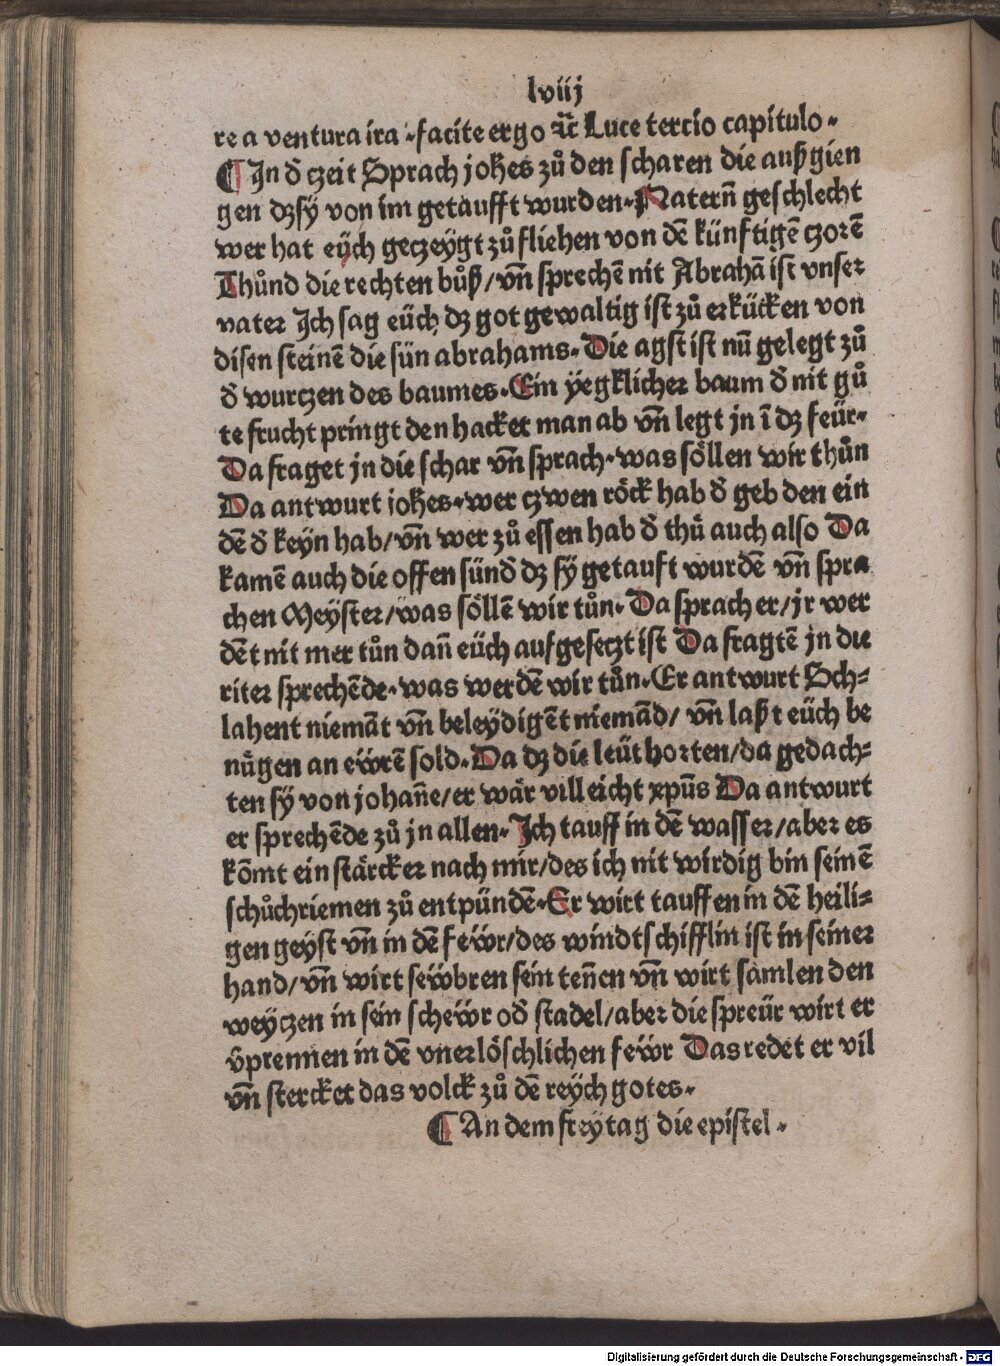 lviij
re a ventura ira · facite ergo ⁊c̄ Luce tercio capitulo ·
¶ In đ czeit Sprach joħes zů den scharen die außgien
gen dꝫ sÿ von im getaufft wurden · Natern̄ geschlecht
wer hat eüch geczeÿgt zů fliehen von dē künftigē czorē
Thůnd die rechten bůß / vn̄ sprechē nit Abrahā ist vnser
vater Ich sag eüch dꝫ got gewaltig ist zů erkücken von
disen steinē die sün abrahams · Die agst ist nū gelegt zů
đ wurczen des baumes · Ein ÿegklicher baum đ nit gů
te frucht pringt den hacket man ab vn̄ legt jn ī dꝫ feür ·
Da fraget jn die schar vn̄ sprach · was söllen wir thůn
Da antwurt joħes · wer czwen röck hab đ geb den ein
dē đ keÿn hab / vn̄ wer zů essen hab đ thů auch also Da
kamē auch die offen sünđ dꝫ sÿ getauft wurdē vn̄ spra
chen Meÿster / was söllē wir tůn · Da sprach er / jr wer
dēt nit mer tůn dan̄ eüch aufgeseczt ist Da fragtē jn die
riter sprechēde · was werdē wir tůn · Er antwurt Sch⸗
lahent niemāt vn̄ beleÿdigēt niemād / vn̄ laßt eüch be
nůgen an ewrē sold · Da dꝫ die leüt horten / da gedach⸗
ten sÿ von johan̄e / er wär villeicht xp̄us Da antwurt
er sprechēde zů jn allen · Ich tauff in dē wasser / aber es
kōmt ein stärcker nach mir / des ich nit wirdig bin seinē
schůchriemen zů entpündē · Er wirt tauffen in dē heili⸗
gen geÿst vn̄ in dē fewr / des windtschifflin ist in seiner
hand / vn̄ wirt sewbren sein ten̄en vn̄ wirt samlen den
weÿczen in sein schewr ođ stadel / aber die spreür wirt er
v̄prennen in dē vnerlöschlichen fewr Das redet er vil
vn̄ stercket das volck zů dē reÿch gotes ·
¶ An dem freÿtag die epistel ·
Digitalisierung gefördert durch die Deutsche Forschungsgemeinschaft - DFG